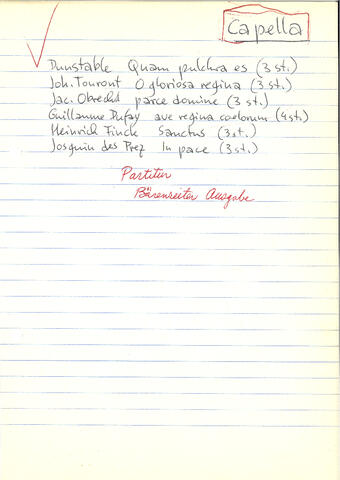 Capella
Dunstable Quam pulchra es (3 st.)
Joh. Touront O gloriosa regina (3 st.)
Jac. Obrecht parce domine (3 st.)
Guillaume Dufay ave regina caelorum (4 st.)
Heinrich Finck Sanctus (3 st.)
Josquin des Prez In pace (3 st.)
Partitur
Bärenreiter Ausgabe